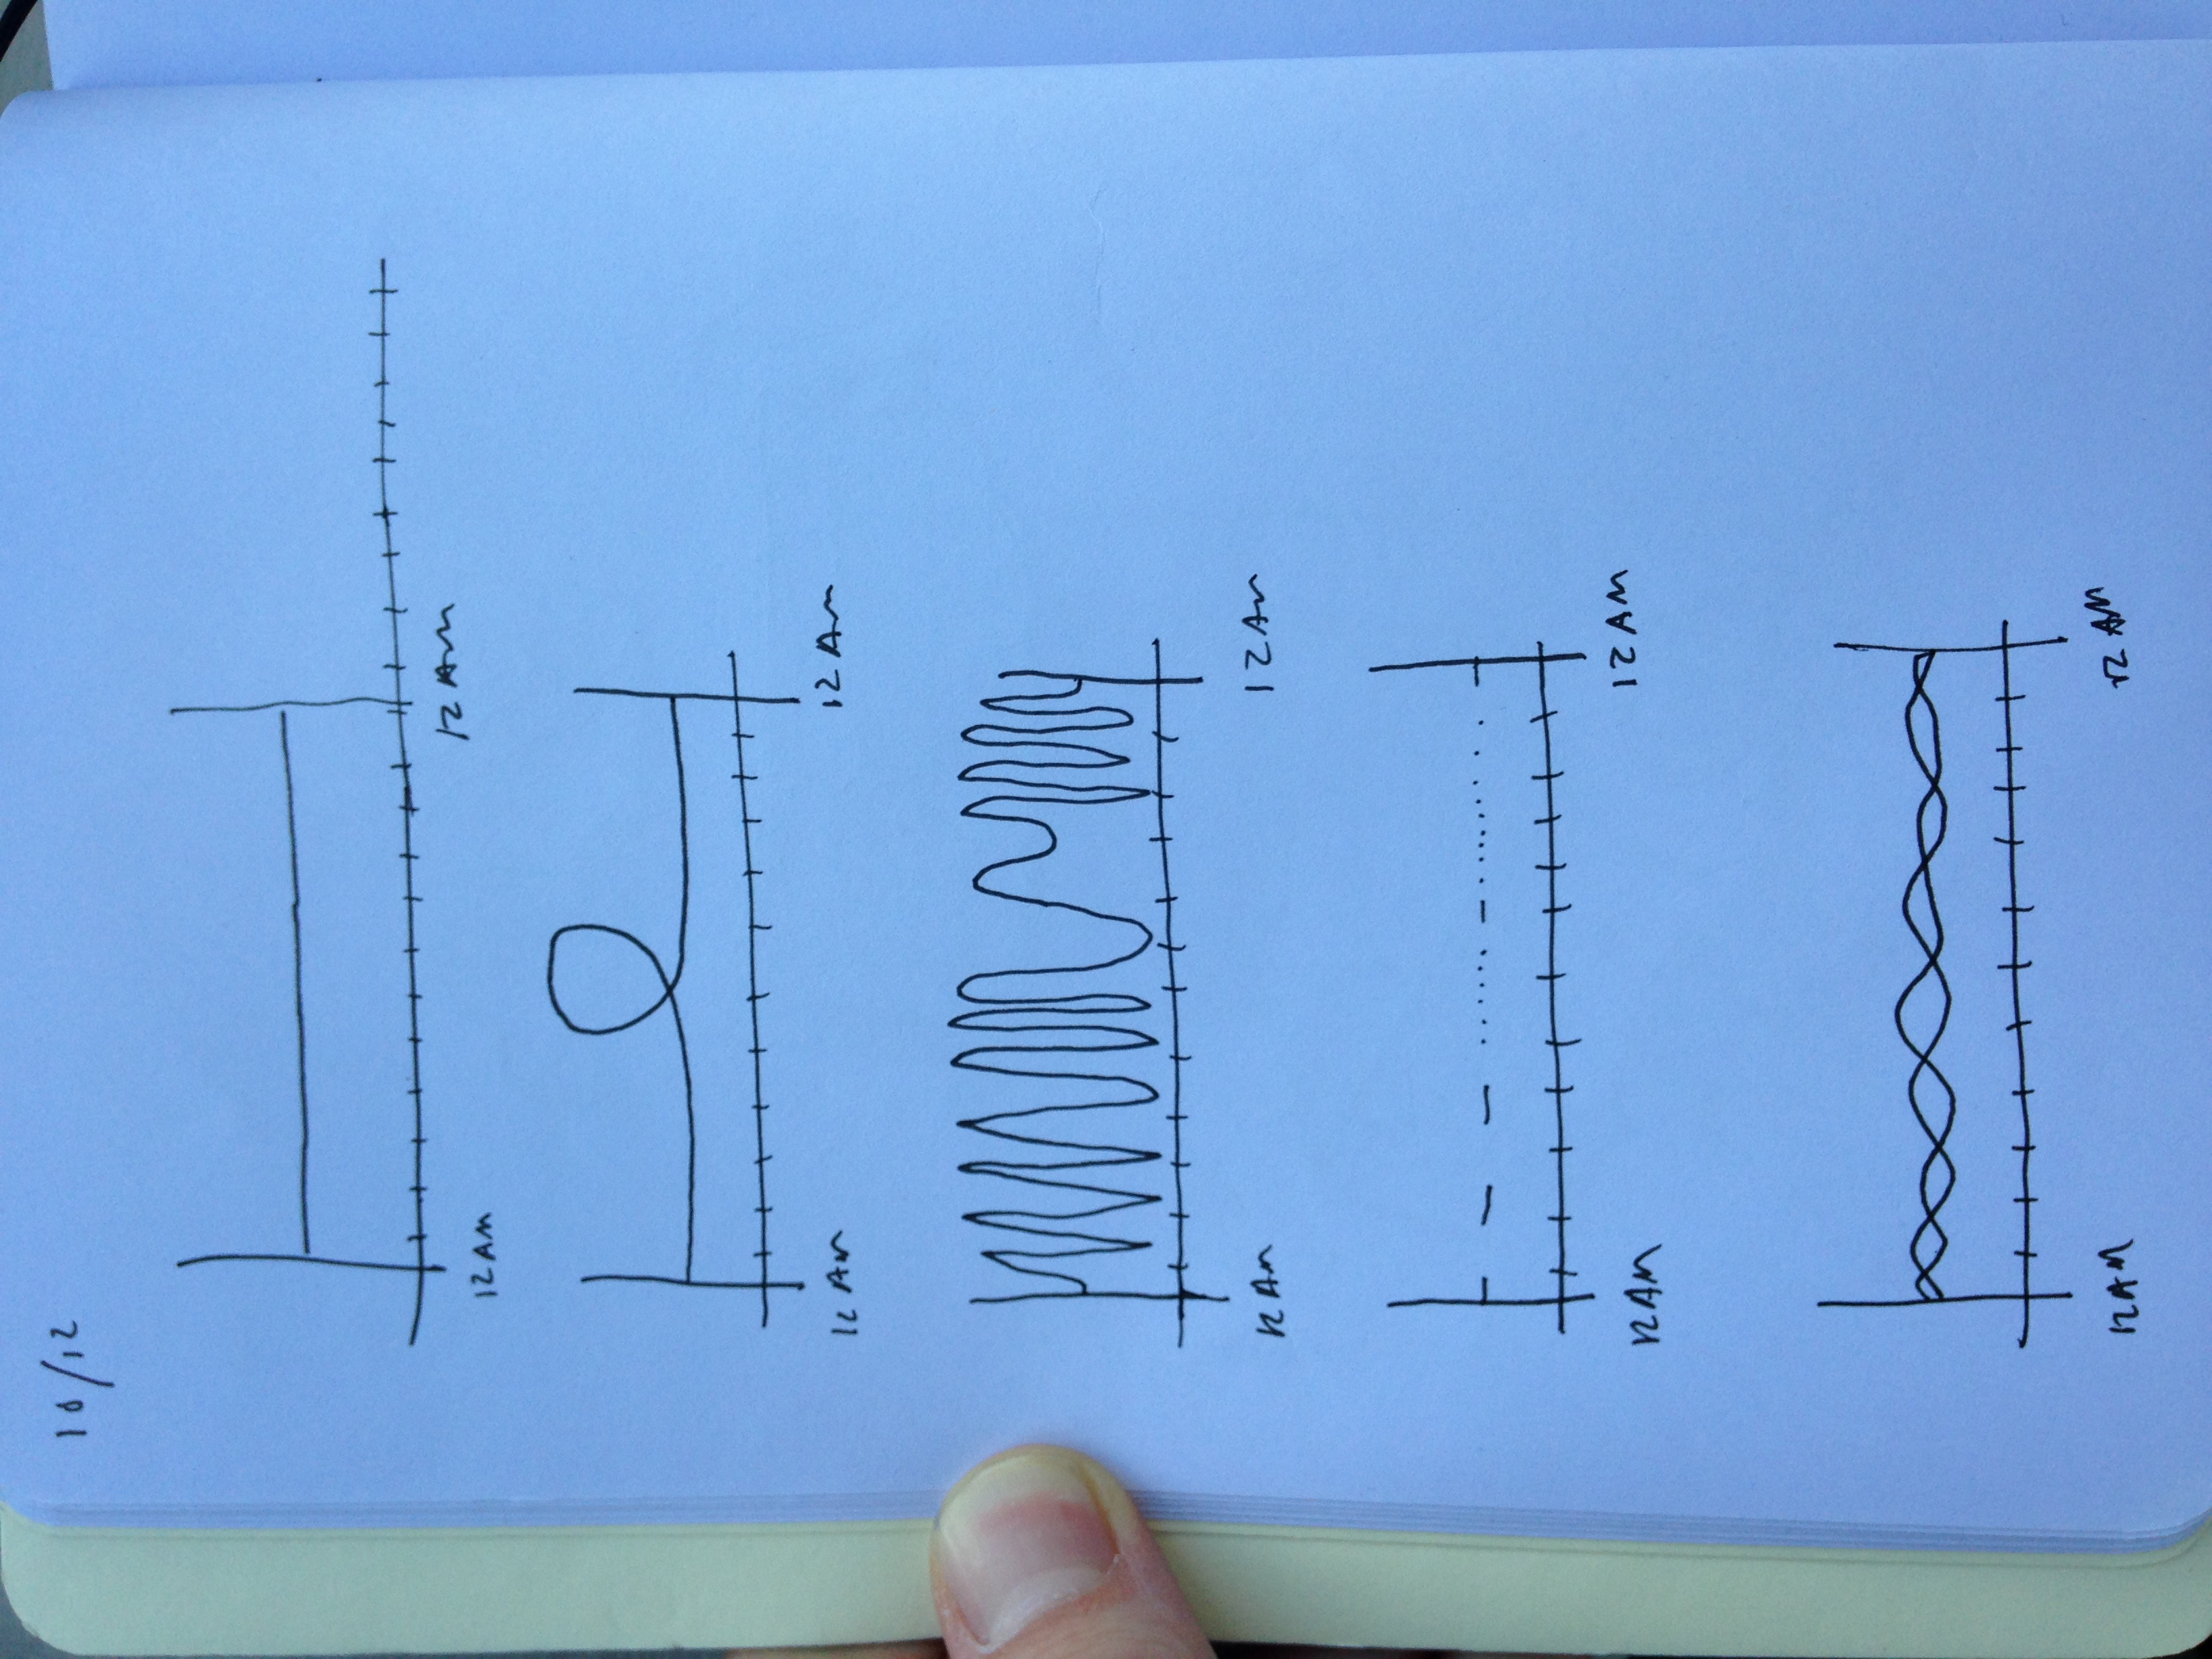 10/12
12 AM
12 AM
12 AM
12 AM
12 AM
12 AM
12 AM
12 AM
12 AM
12 AM